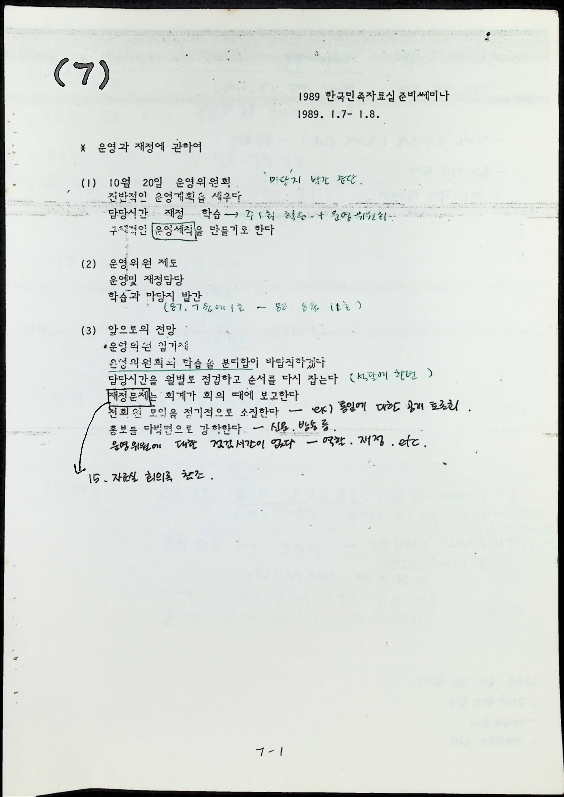 (7)
1989 한국민족자료실 준비쎄미나
1989. 1.7- 1.8.
* 운영과 재정에 관하여
(1) 10월 20일 운영위원회 '마당'지 발간 분담.
전반적인 운영계획을 세우다
담당시간 재정 학습 → 주1회 학습 + 운영위원회
구체적인 운영세칙을 만들기로 한다
(2) 운영위원 제도
운영및 재정담당
학습과 마당지 발간
(87. 7월에 1호 - 88 12호)
(3) 앞으로의 전망
운영위원 임기제
운영위원회와 학습을 분리함이 바람직하겠다
담당시간을 월별로 점검하고 순서를 다시 잡는다 (석달에 한번)
재정문제는 회계가 회의 때에 보고한다
전회원 모임을 정기적으로 소집한다 - ex) 통일에 대한 공개 토론회.
홍보를 다방면으로 강화한다 - 신문. 방송 등.
운영위원에 대한 점검시간이 있다 - 역할. 재정. etc.
15. 자료실 회의록 참조.
7-1